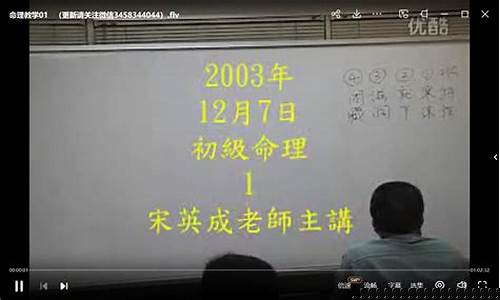 命理教学01 （更新请关注微信3458344044）.flv
优酷
2003年
12月7日
初級命理
1
宋英成老師主講
④③②①
00:00:01
01:02:52
倍速 流畅 字幕 选集